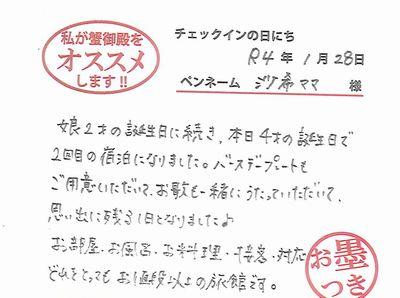 私が蟹御殿を
オススメ
します!!
チェックインの日にち
R4年1月28日
ペンネーム
希ママ 様
娘2才の誕生日に続き、本日4才の誕生日で
2回目の宿泊になりました。バースデープレートも
ご用意いただいて、お歌も一緒にうたっていただいて、
思い出に残る1日となりました♪
お部屋・お風呂・お料理・接客・対応
どれをとっても お値段以上の旅館です。
お墨
つき